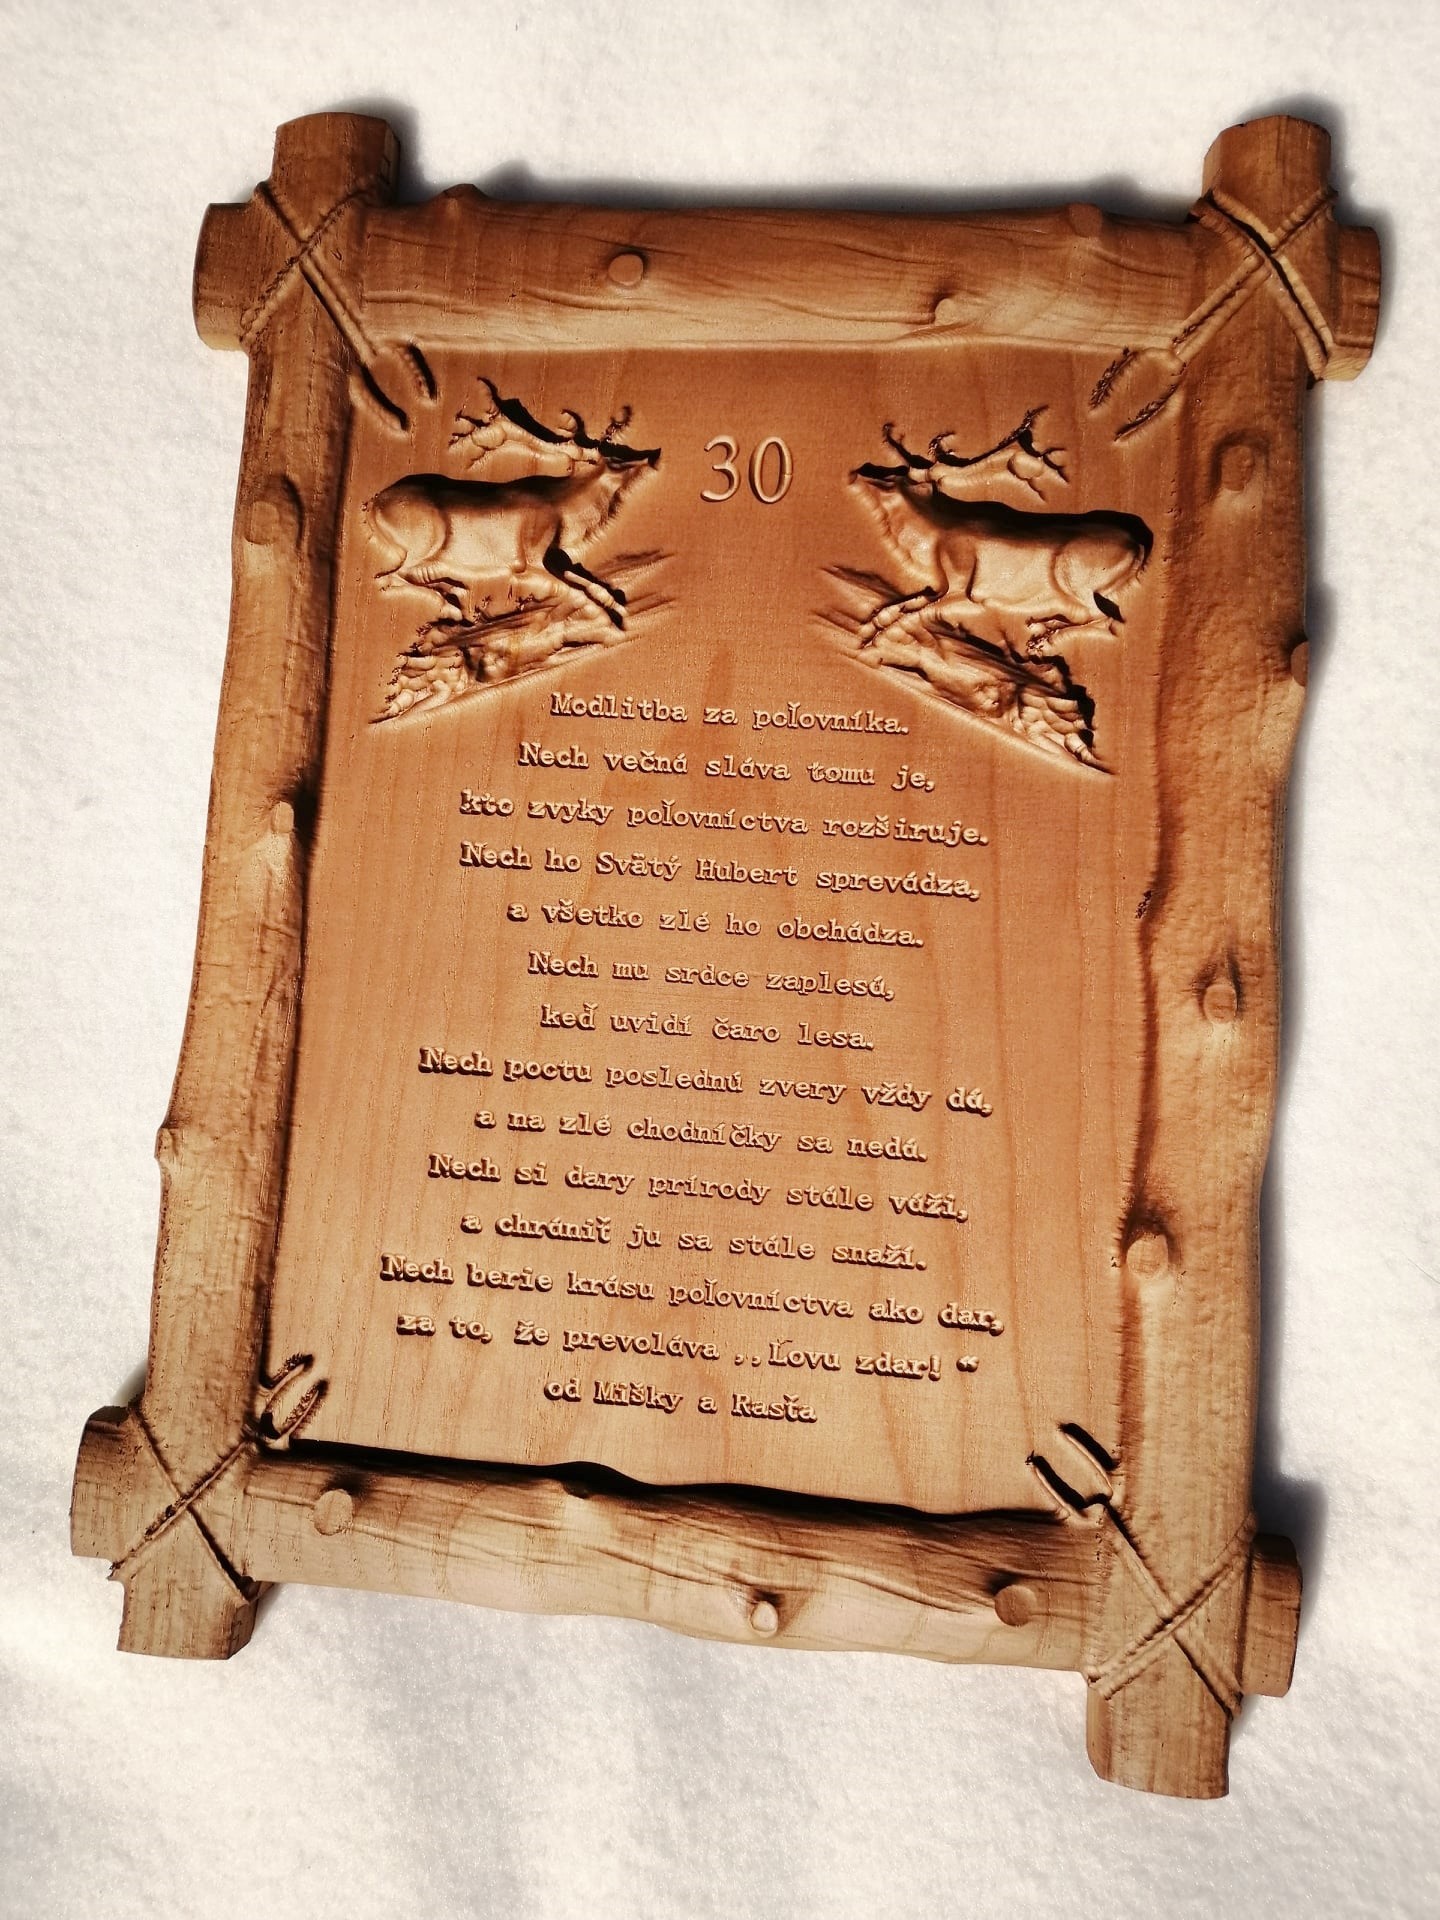 30
Modlitba za poľovníka.
Nech večná sláva tomu je,
kto zvyky poľovníctva rozširuje.
Nech ho Svätý Hubert sprevádza,
a všetko zlé ho obchádza.
Nech mu srdce zaplesá,
keď uvidí čaro lesa.
Nech poctu poslednú zvery vždy dá,
a na zlé chodníčky sa nedá.
Nech si dary prírody stále váži,
a chrániť ju sa stále snaží.
Nech berie krásu poľovníctva ako dar,
za to, že prevoláva ,,Ľovu zdar! “
od Mišky a Rasťa